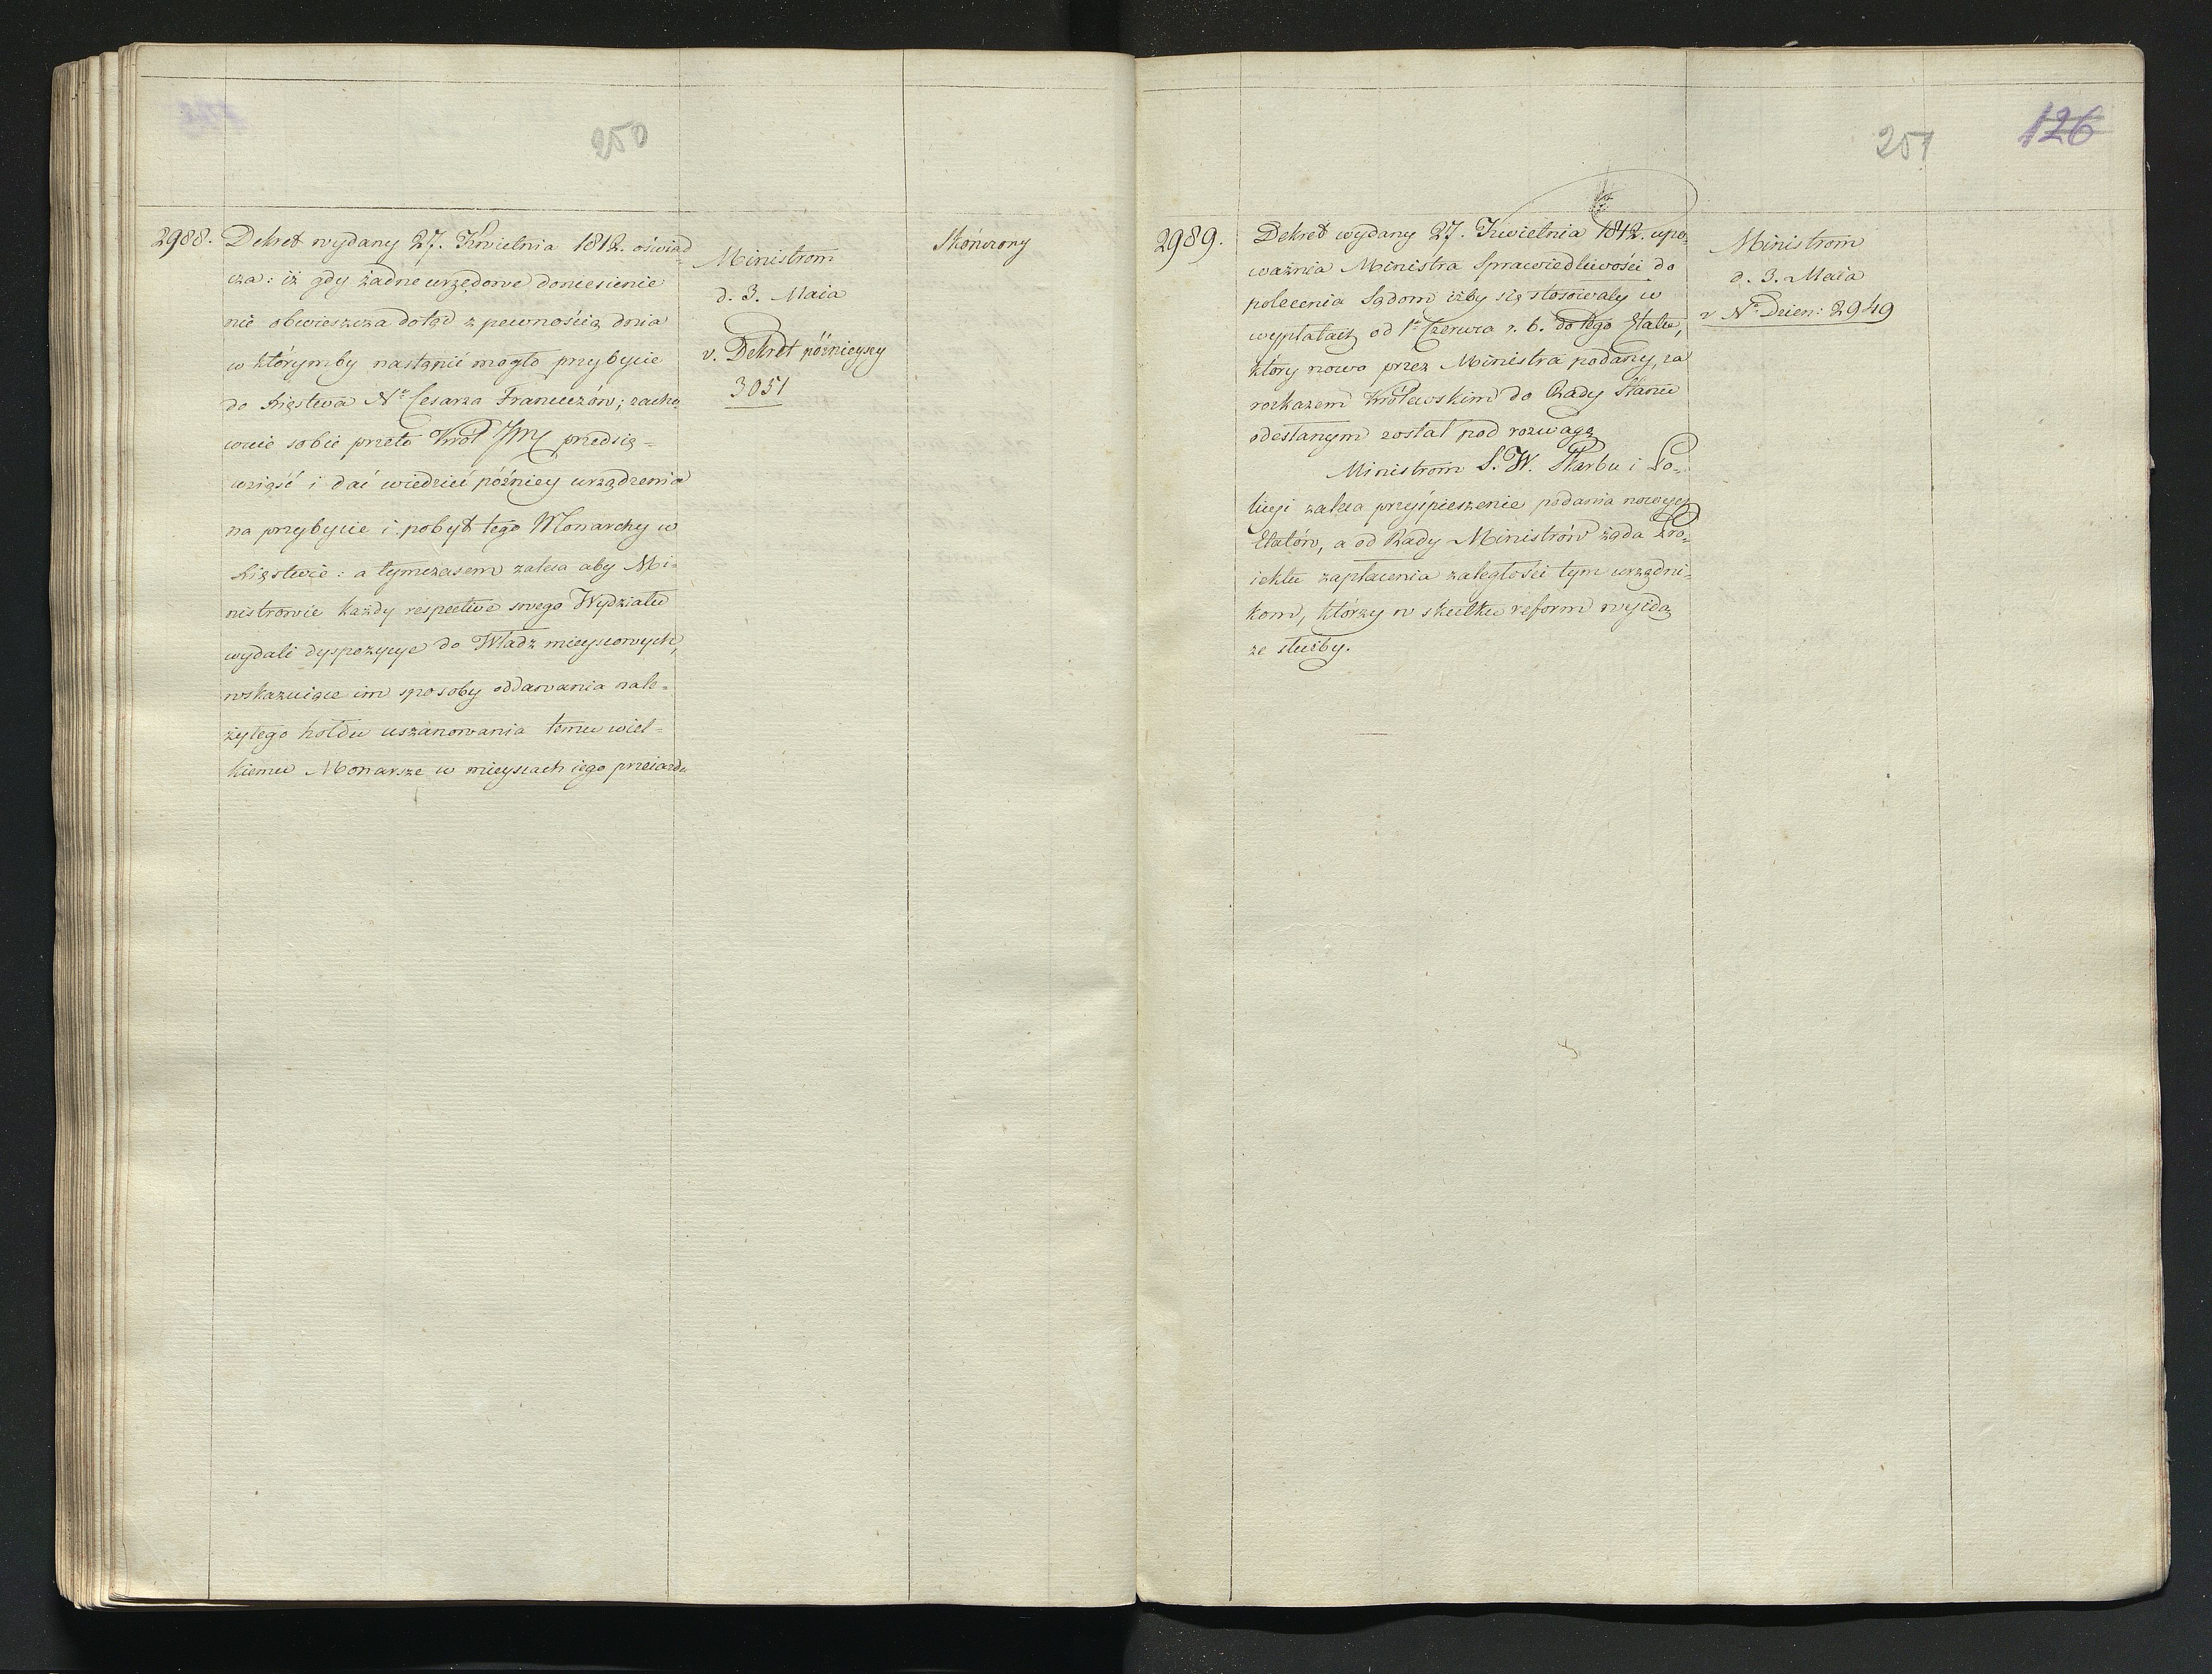 250
2988.
Dekret wydany 27. Kwietnia 1812. oświad-
cza: iż gdy żadne urzędowe doniesienie
nie obwieszcza dotąd z pewnością dnia
w którymby nastąpić mogło przybycie
do Xięstwa Nº Cesarza Francuzów; zacho-
wuie sobie przeto Król JMć przedsię-
wziąść i dać wiedzieć późniey urządzenia
na przybycie i pobyt tego Monarchy w
Xięstwie: a tymczasem zaleca aby Mi-
nistrowie każdy respective swego Wydziału
wydali dyspozycye do Władz mieyscowych,
wskazuiące im sposoby oddawania nale-
żytego hołdu uszanowania temu wiel-
kiemu Monarsze w mieyscach iego przeiazdu
Ministrom
d. 3. Maia
v. Dekret późnieyszy
3051
Skończony
251
126
2989.
Dekret wydany 27. Kwietnia 1812. upo-
ważnia Ministra Sprawiedliwości do
polecenia Sądom iżby się stosowały w
wypłatach od 1º Czerwca r. b. do tego Etatu,
który nowo przez Ministra podany, za
rozkazem Królewskim do Rady Stanu
odesłanym został pod rozwagę
Ministrom S. W. Skarbu i Po-
licyi zaleca przyśpieszenie podania nowych
Etatów, a od Rady Ministrów żąda Pro-
iektu zapłacenia zaległości tym urzędni-
kom, którzy w skutku reform wyidą
ze służby.
Ministrom
d. 3. Maia
v Nº Dzien: 2949